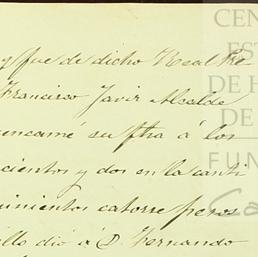 y fue de dicho Real de
Francisco Javir Alcalde
encamé su fha á los
cientos y dos en la canti
uinientos catorre pesos
llo dió á D. Fernando
CEN
ES
DE H
DE
FUN
Ca